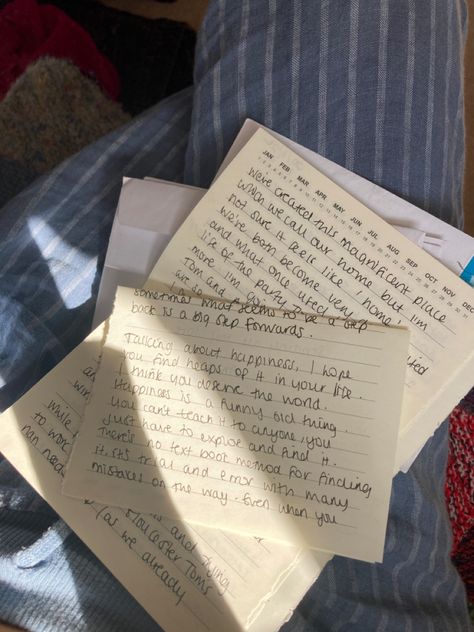 JAN FEB MAR APR MAY JUN JUL AUG SEP OCT NOV DEC
we've created this magnificent place
which we call our home but I'm
not sure it feels like 'home'.
We've both become very
and what once
life of the party
more. I'm
Tom and
sometimes what seems to be a step
back is a big step forwards.
Talking about happiness, I hope
you find heaps of it in your life.
I think you deserve the world.
Happiness is a funny old thing.
You can't teach it to anyone, you
just have to exploe and find it.
There's no text book method for finding
it, its trial and error with many
mistakes on the way. Even when you
while
to work
nan need
and trying
Gloucester Toms
(as we already